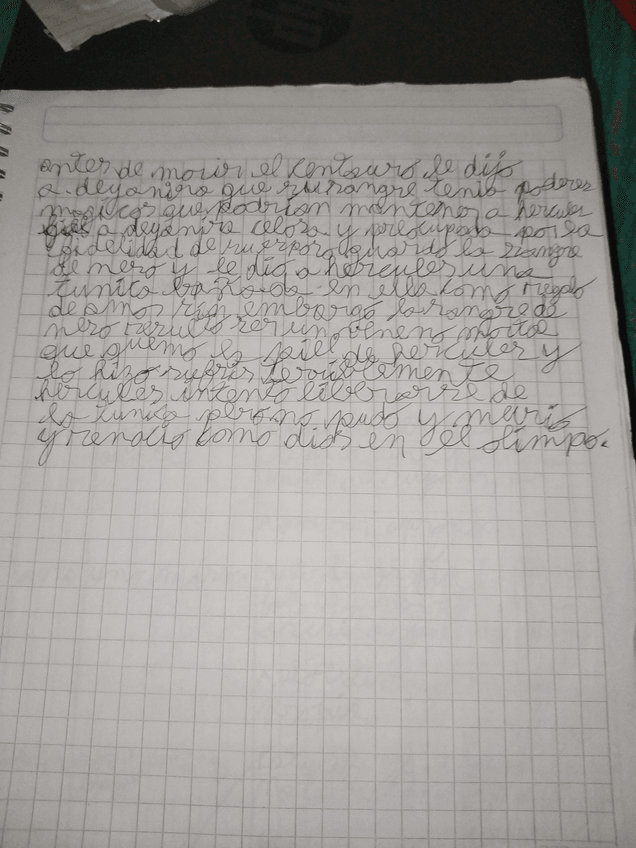 antes de morir el centauro le dijo
a deyanira que su sangre tenia poderes
magicos que podrian mantener a hercules
a deyanira celosa y preocupada por la
fidelidad de su esposo guardo la sangre
de neso y le dio a hercules una
tunica bañada en ella como regalo
de amor sin embargo la sangre de
neso resulto ser un veneno mortal
que quemo la piel de hercules y
lo hizo sufrir terriblemente
hercules intento liberarse de
la tunica pero no pudo y murio
y renacio como dios en el olimpo.